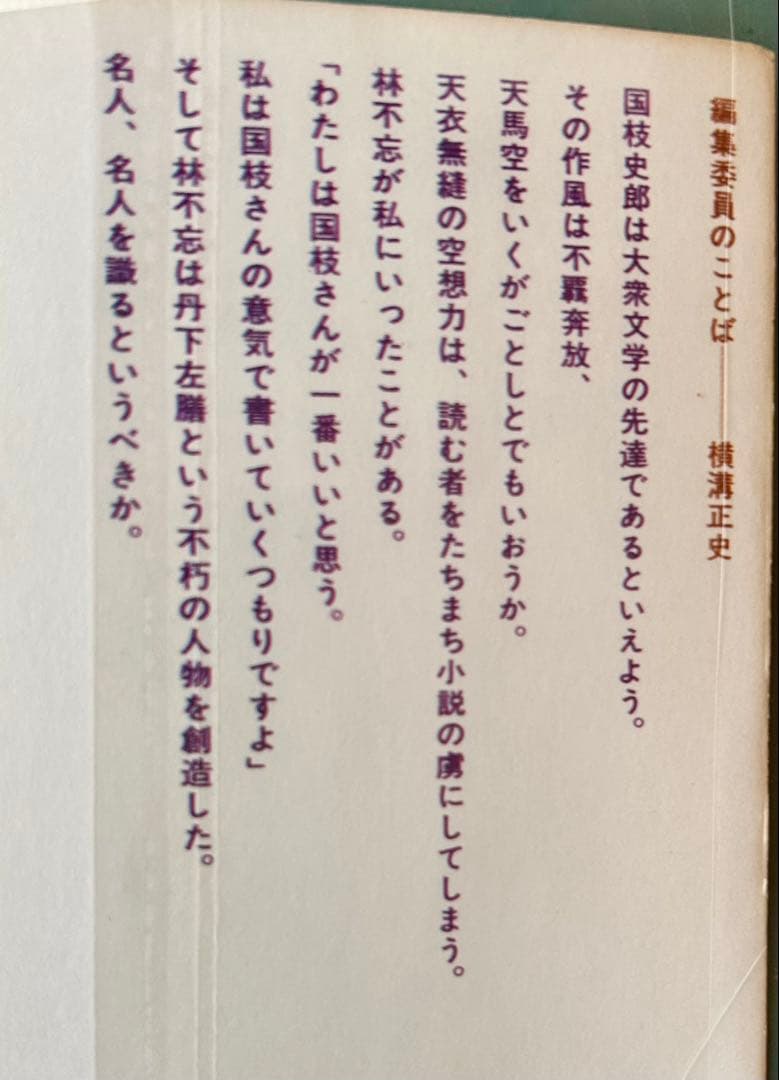 編集委員のことば 横溝正史
国枝史郎は大衆文学の先達であるといえよう。
その作風は不羈奔放、
天馬空をいくがごとしとでもいおうか。
天衣無縫の空想力は、読む者をたちまち小説の虜にしてしまう。
林不忘が私にいったことがある。
「わたしは国枝さんが一番いいと思う。
私は国枝さんの意気で書いていくつもりですよ」
そして林不忘は丹下左膳という不朽の人物を創造した。
名人、名人を識るというべきか。